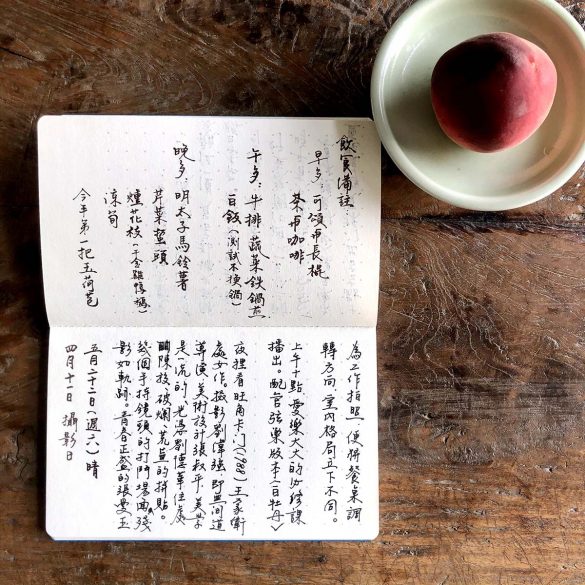 飲食備註:
早歺:可頌與長棍
茶与咖啡
午歺:牛排蔬菜鉄鍋煎
白飯(測試木
晚歺:明太子馬鈴薯
芹菜蜇頭
燻花枝(千金雞鴨鵝)
涼筍
今年第一把玉荷苞
為工作拍照,便將餐桌調
轉方向,室內格局立下不同。
上午十點,愛樂大大的課
播出。配管弦樂版本〈白牡丹〉
夜裡看旺角卡門(1988)王家衛
處女作,攝影劉偉強,即無間道
導演,美術設計張叔平,美學
是一流的,尤為劉德華住處
陳設破爛、荒蕪的拼貼。
幾個手持鏡頭的打鬥場面,殘
影如軌跡。青春正盛的張曼玉
五月二十二日(週六)晴
四月十一日 攝影日